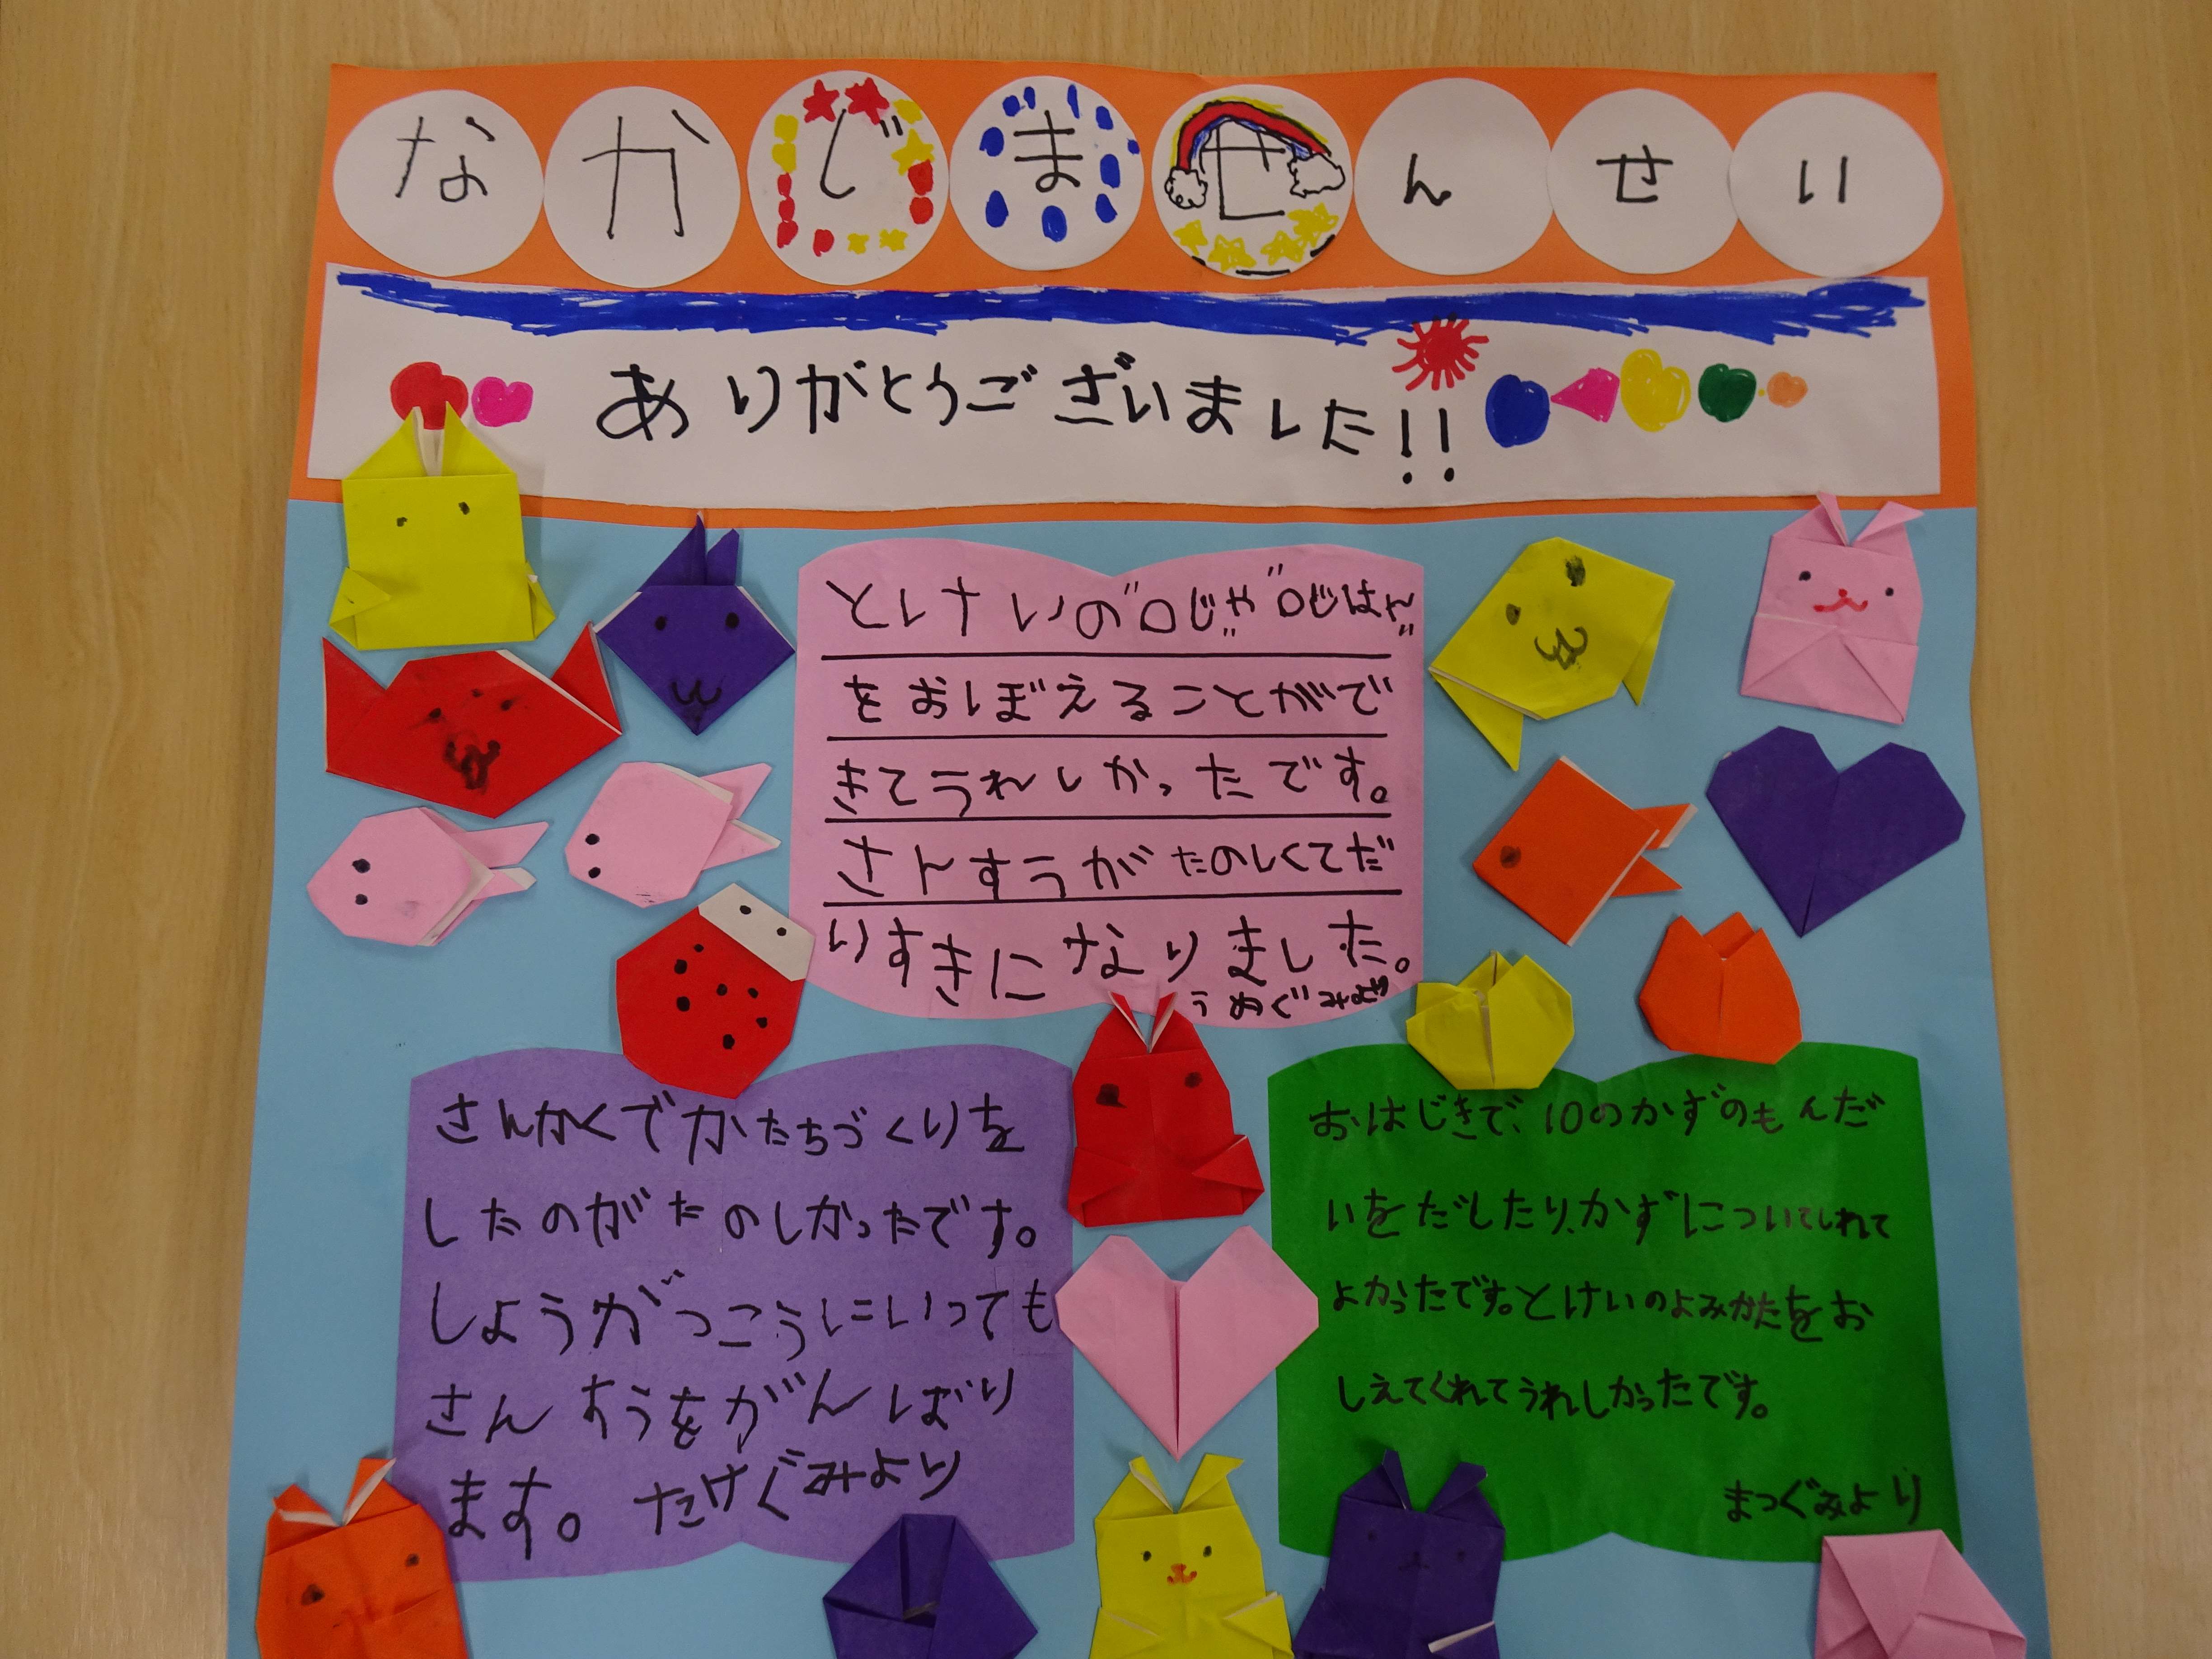 なかじませんせい
ありがとうございました!!
とけいの"〇じや"〇じはん"
をおぼえることがで
きてうれしかったです。
さんすうがたのしくてだ
いすきになりました。
うめぐみより
さんかくでかたちづくりを
したのがたのしかったです。
しょうがっこうにいっても
さんすうをがんばり
ます。たけぐみより
おはじきで、10のかずのもんだ
いをだしたり、かずについてしれて
よかったです。とけいのよみかたをお
しえてくれてうれしかったです。
まつぐみより